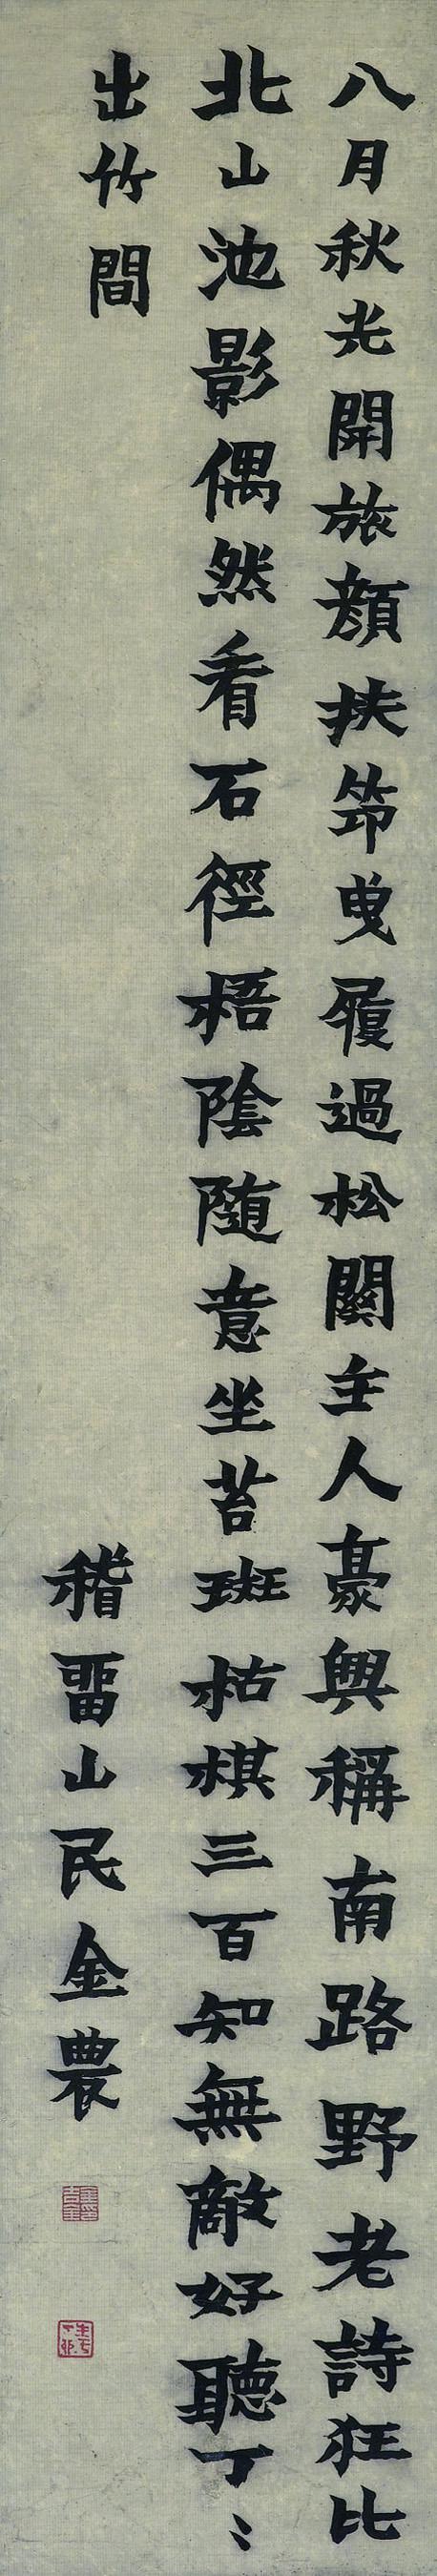 八月秋光開旅顏扶笻曳履過松關主人豪興稱南路野老詩狂比
北山池影偶然看石徑梧陰隨意坐苔斑枯棋三百知無敵好聽丁〻
出竹間
稽畱山民金農